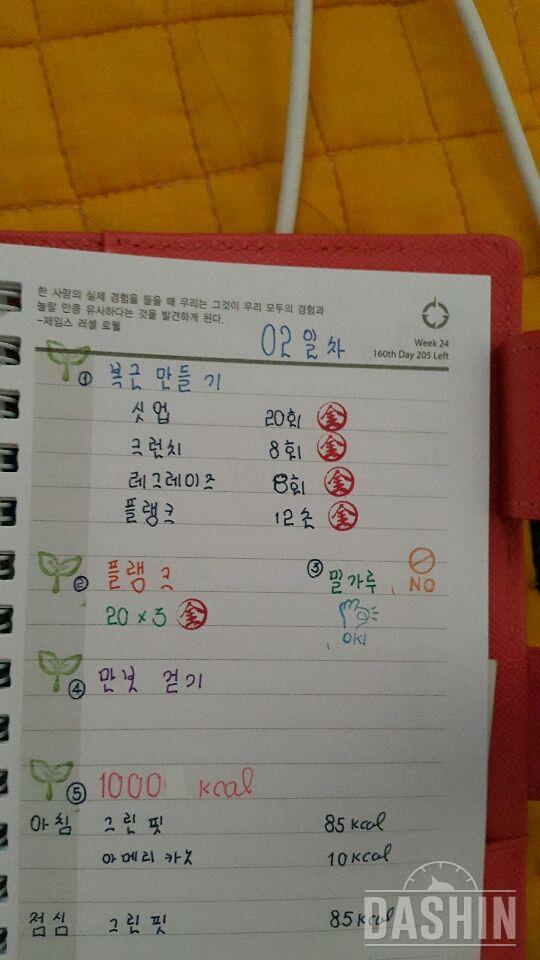 한 사람의 실제 경험을 들을 때 우리는 그것이 우리 모두의 경험과
놀랄 만큼 유사하다는 것을 발견하게 된다.
-제임스 러셀 로웰
Week 24
160th Day 205 Left
02일차
① 복근 만들기
싯업 20회 金
크런치 8회 金
레그레이즈 8회 金
플랭크 12초 金
② 플랭크
20 x 3 金
③ 밀가루 NO
OK!
④ 만보 걷기
⑤ 1000 kcal
아침 그린핏 85 kcal
아메리카노 10 kcal
점심 그린핏 85 kcal
DASHIN